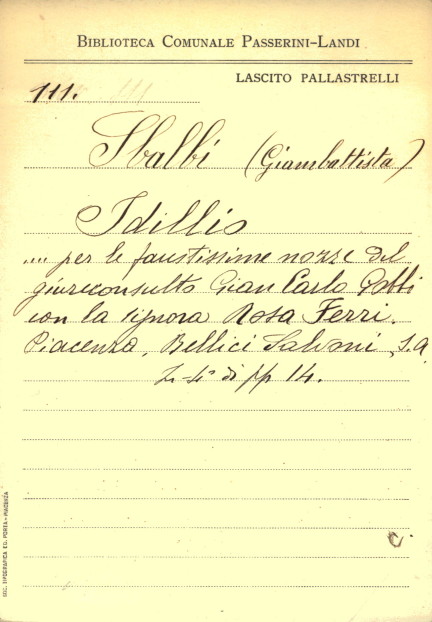 BIBLIOTECA COMUNALE PASSERINI-LANDI
LASCITO PALLASTRELLI
111.
Sbalbi (Giambattista)
Idillio
.... per le faustissime nozze del
giureconsulto Gian Carlo Gobbi
con la signora Rosa Ferri.
Piacenza, Bellici Salvoni, S.a.
di pp 14.
SOC. TIPOGRAFICA ED. PORTA-PIACENZA